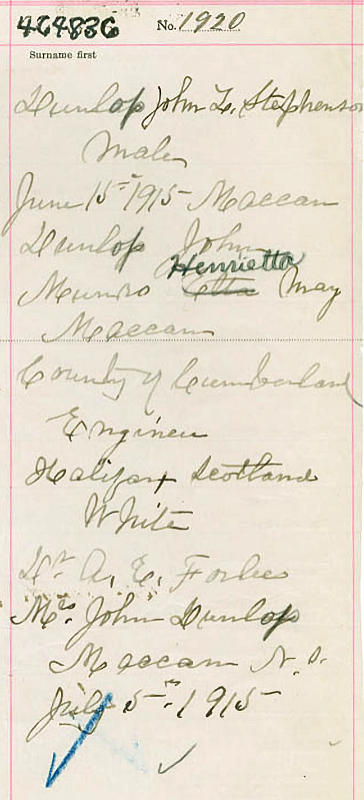 464836
No. 1920
Surname first
Dunlop John L. Stephenson
Male
June 15th 1915 Maccan
Dunlop John
Henrietta
Munro Etta May
Maccan
County of Cumberland
Engineer
Halifax Scotland
White
Dr. A. E. Forbes
Mrs. John Dunlop
Maccan N.S.
July 5th 1915